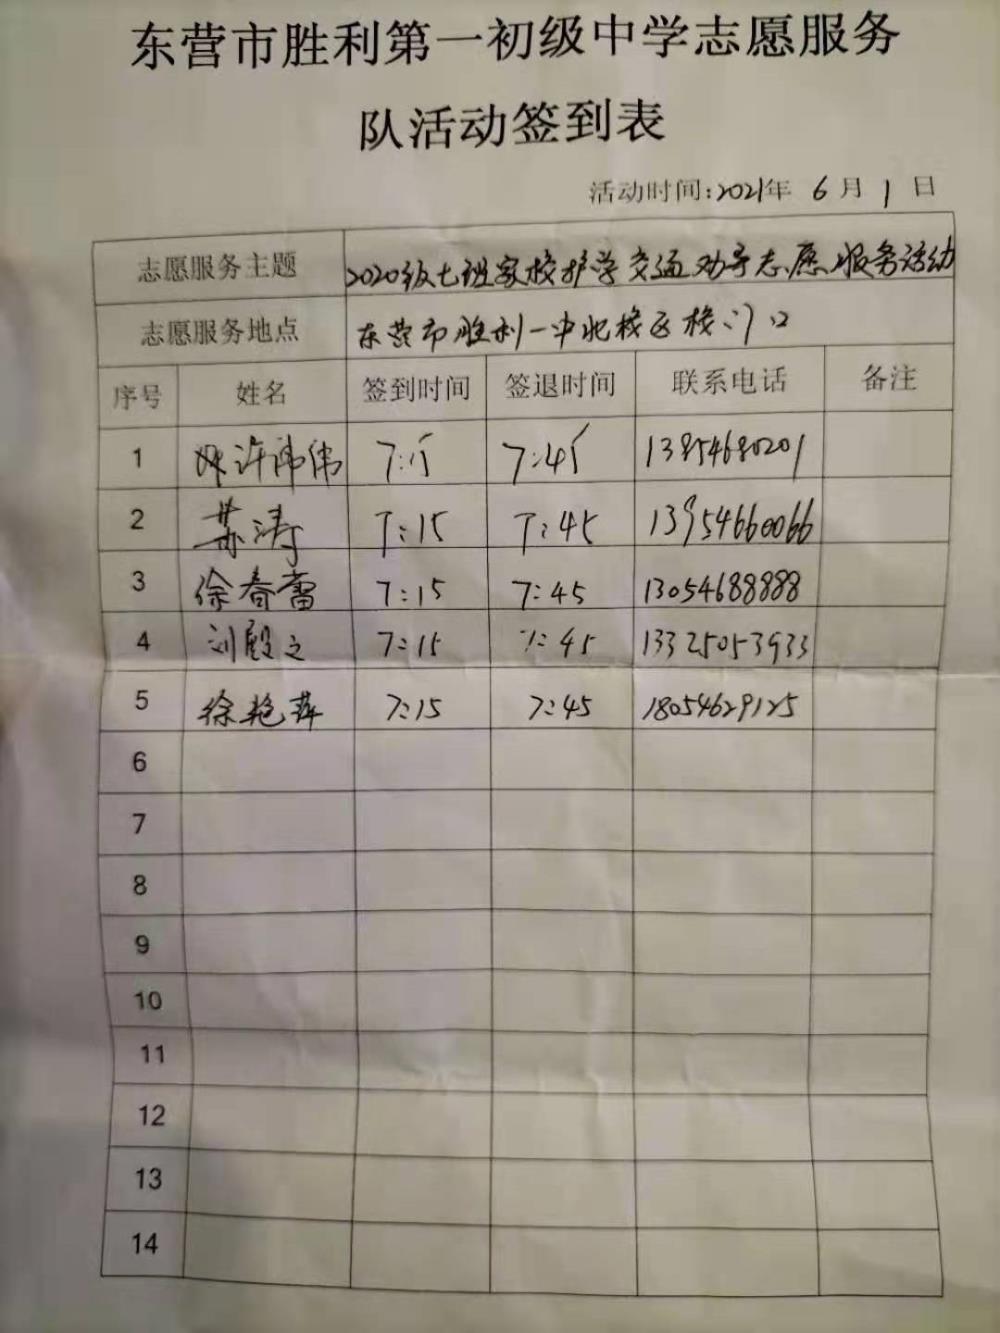 东营市胜利第一初级中学志愿服务
队活动签到表
活动时间:2021年 6月 1日
志愿服务主题 2020级七班家校护学交通劝导志愿服务活动
志愿服务地点 东营市胜利一中北校区校门口
序号 姓名 签到时间 签退时间 联系电话 备注
1 许沛伟 7:15 7:45 13854680201
2 苏涛 7:15 7:45 13954660066
3 徐春蕾 7:15 7:45 13054688888
4 刘殿之 7:15 7:45 13325053933
5 徐艳萍 7:15 7:45 18054629125
6
7
8
9
10
11
12
13
14